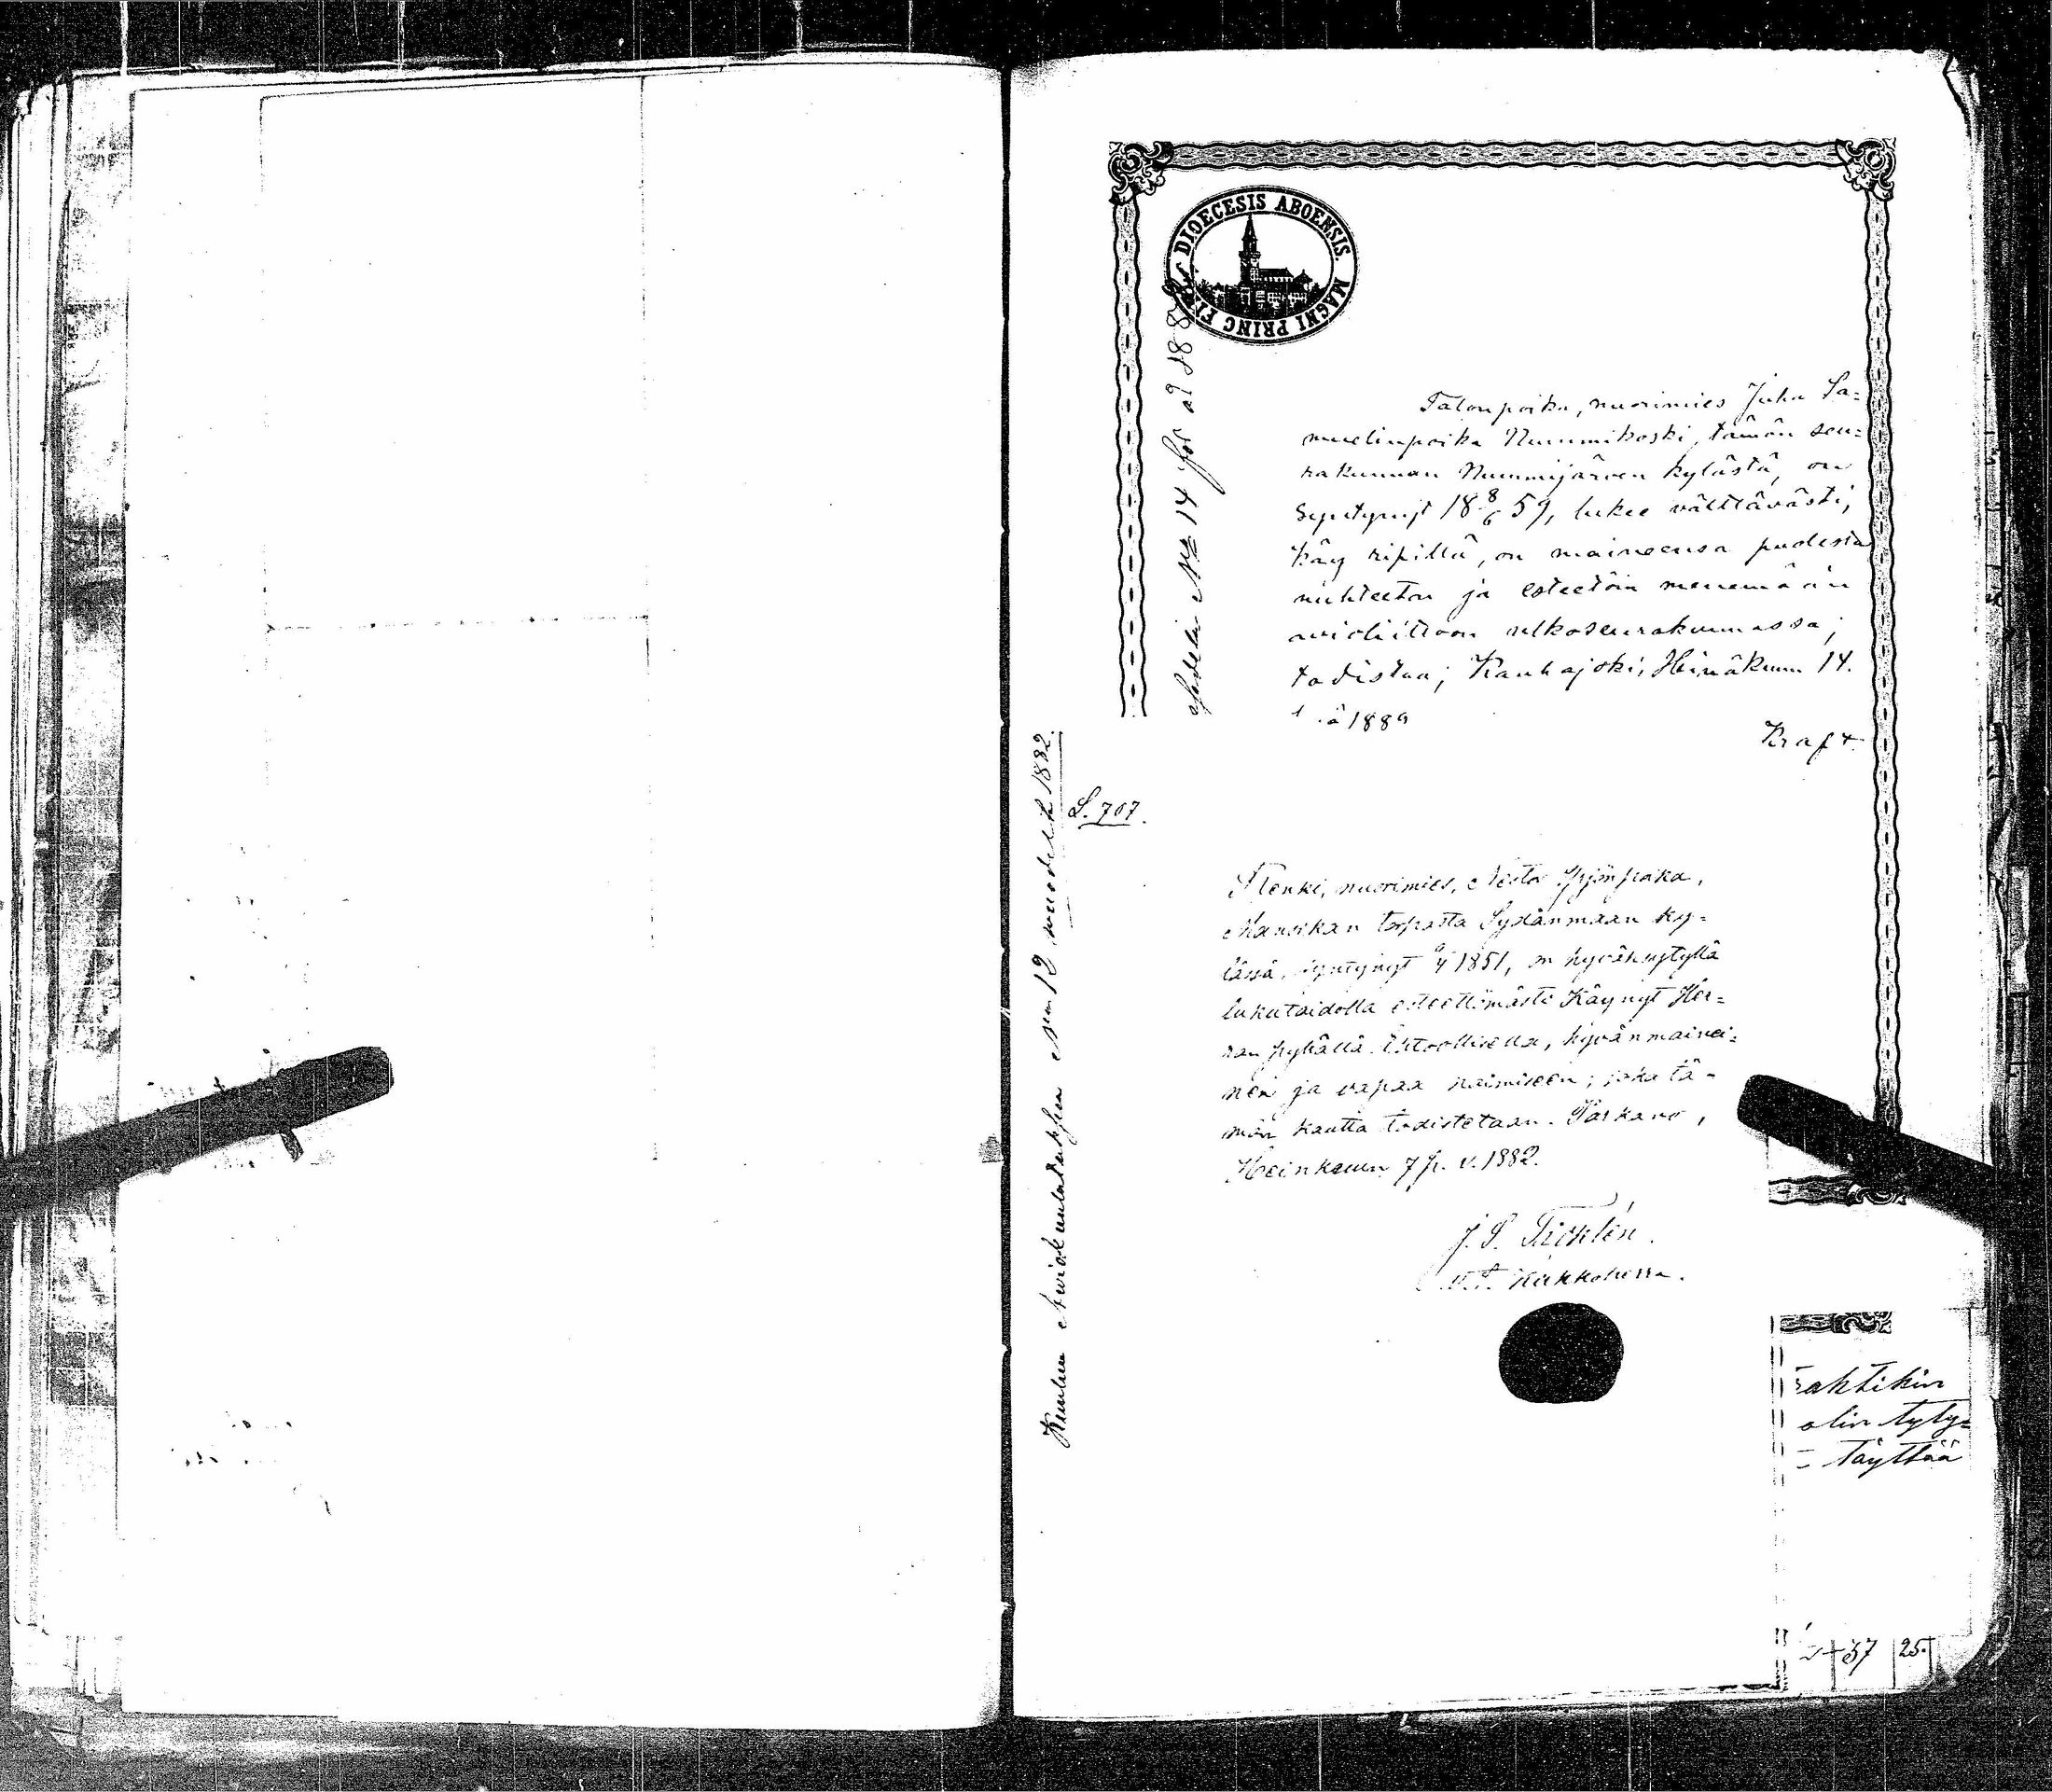 DIOECESIS ABOENSIS. MAGNI PRINC
N:o 14 för
Talonpoika, nuorimies Juha Sa=
muelinpoika Nummikoski, tämän seu=
rakunnan Nummijärven kylästä, on
syntynyt 18 8/6 59, lukee välttävästi,
käy ripillä, on maineensa puolesta
nuhteeton ja esteetöin menemään
avioliittoon ulkoseurakunnassa;
todistaa; Kauhajoki, Heinäkuun 14.
1889
Kraft.
Kuuluu Aviokuulutuksen N:em 12 vuodelta 1882.
S. 707.
Renki, nuorimies, Nestor Yrjönpoika,
Mansikan torpasta Sydänmaan ky=
lässä, syntynyt 1851, on hyväksytyllä
lukutaidolla esteettömästi käynyt Her=
ran pyhällä Ehtoollisella, hyvänmainei=
nen ja vapaa naimiseen; joka tä=
män kautta todistetaan. Parkano,
Heinkuun 7 p. v. 1882.
J. S.
V. T. Kirkkoherra.
aktikin
olin tyty=
täyttää
37 25